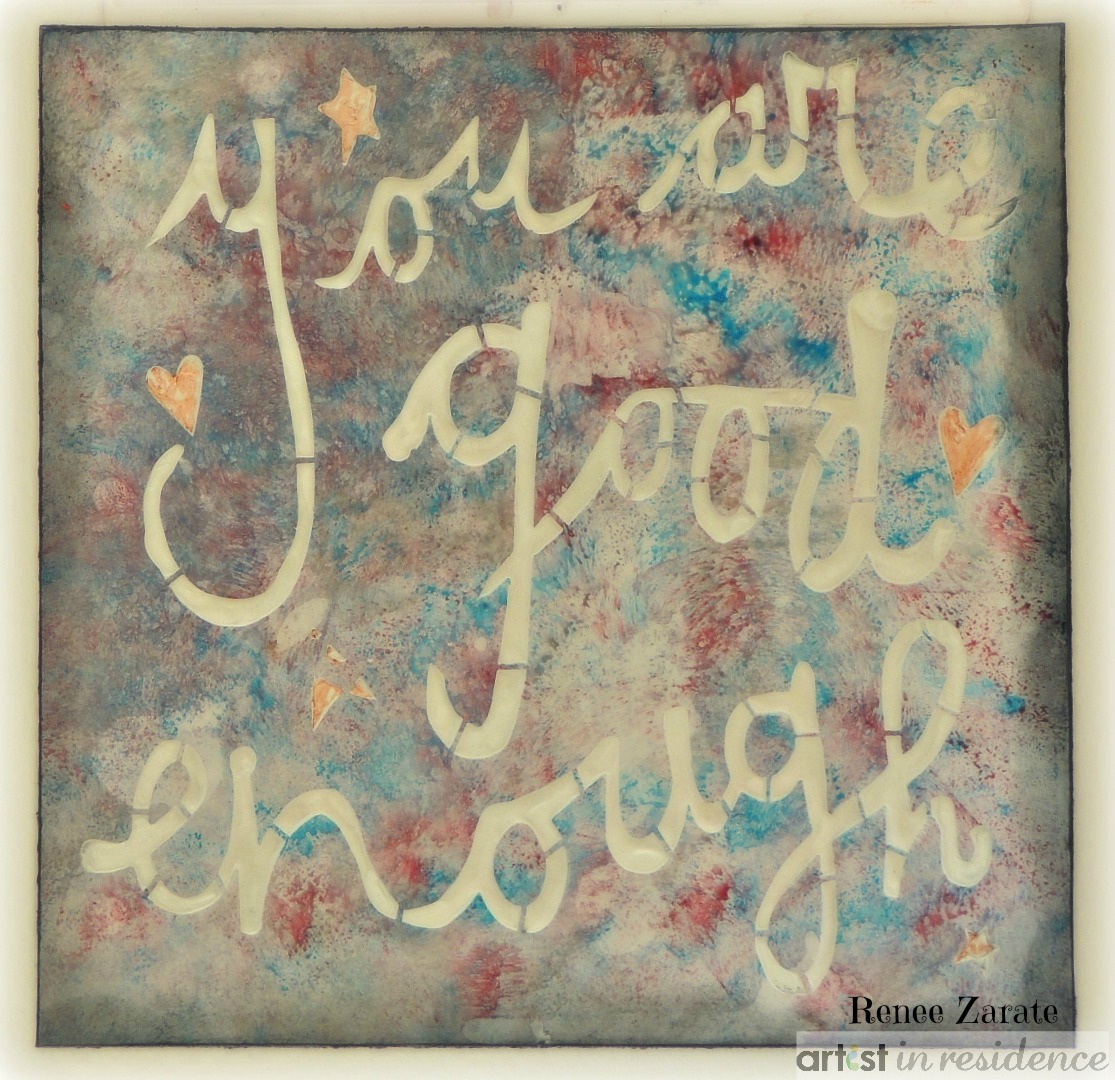 you are
good
enough
Renee Zarate
artist in residence